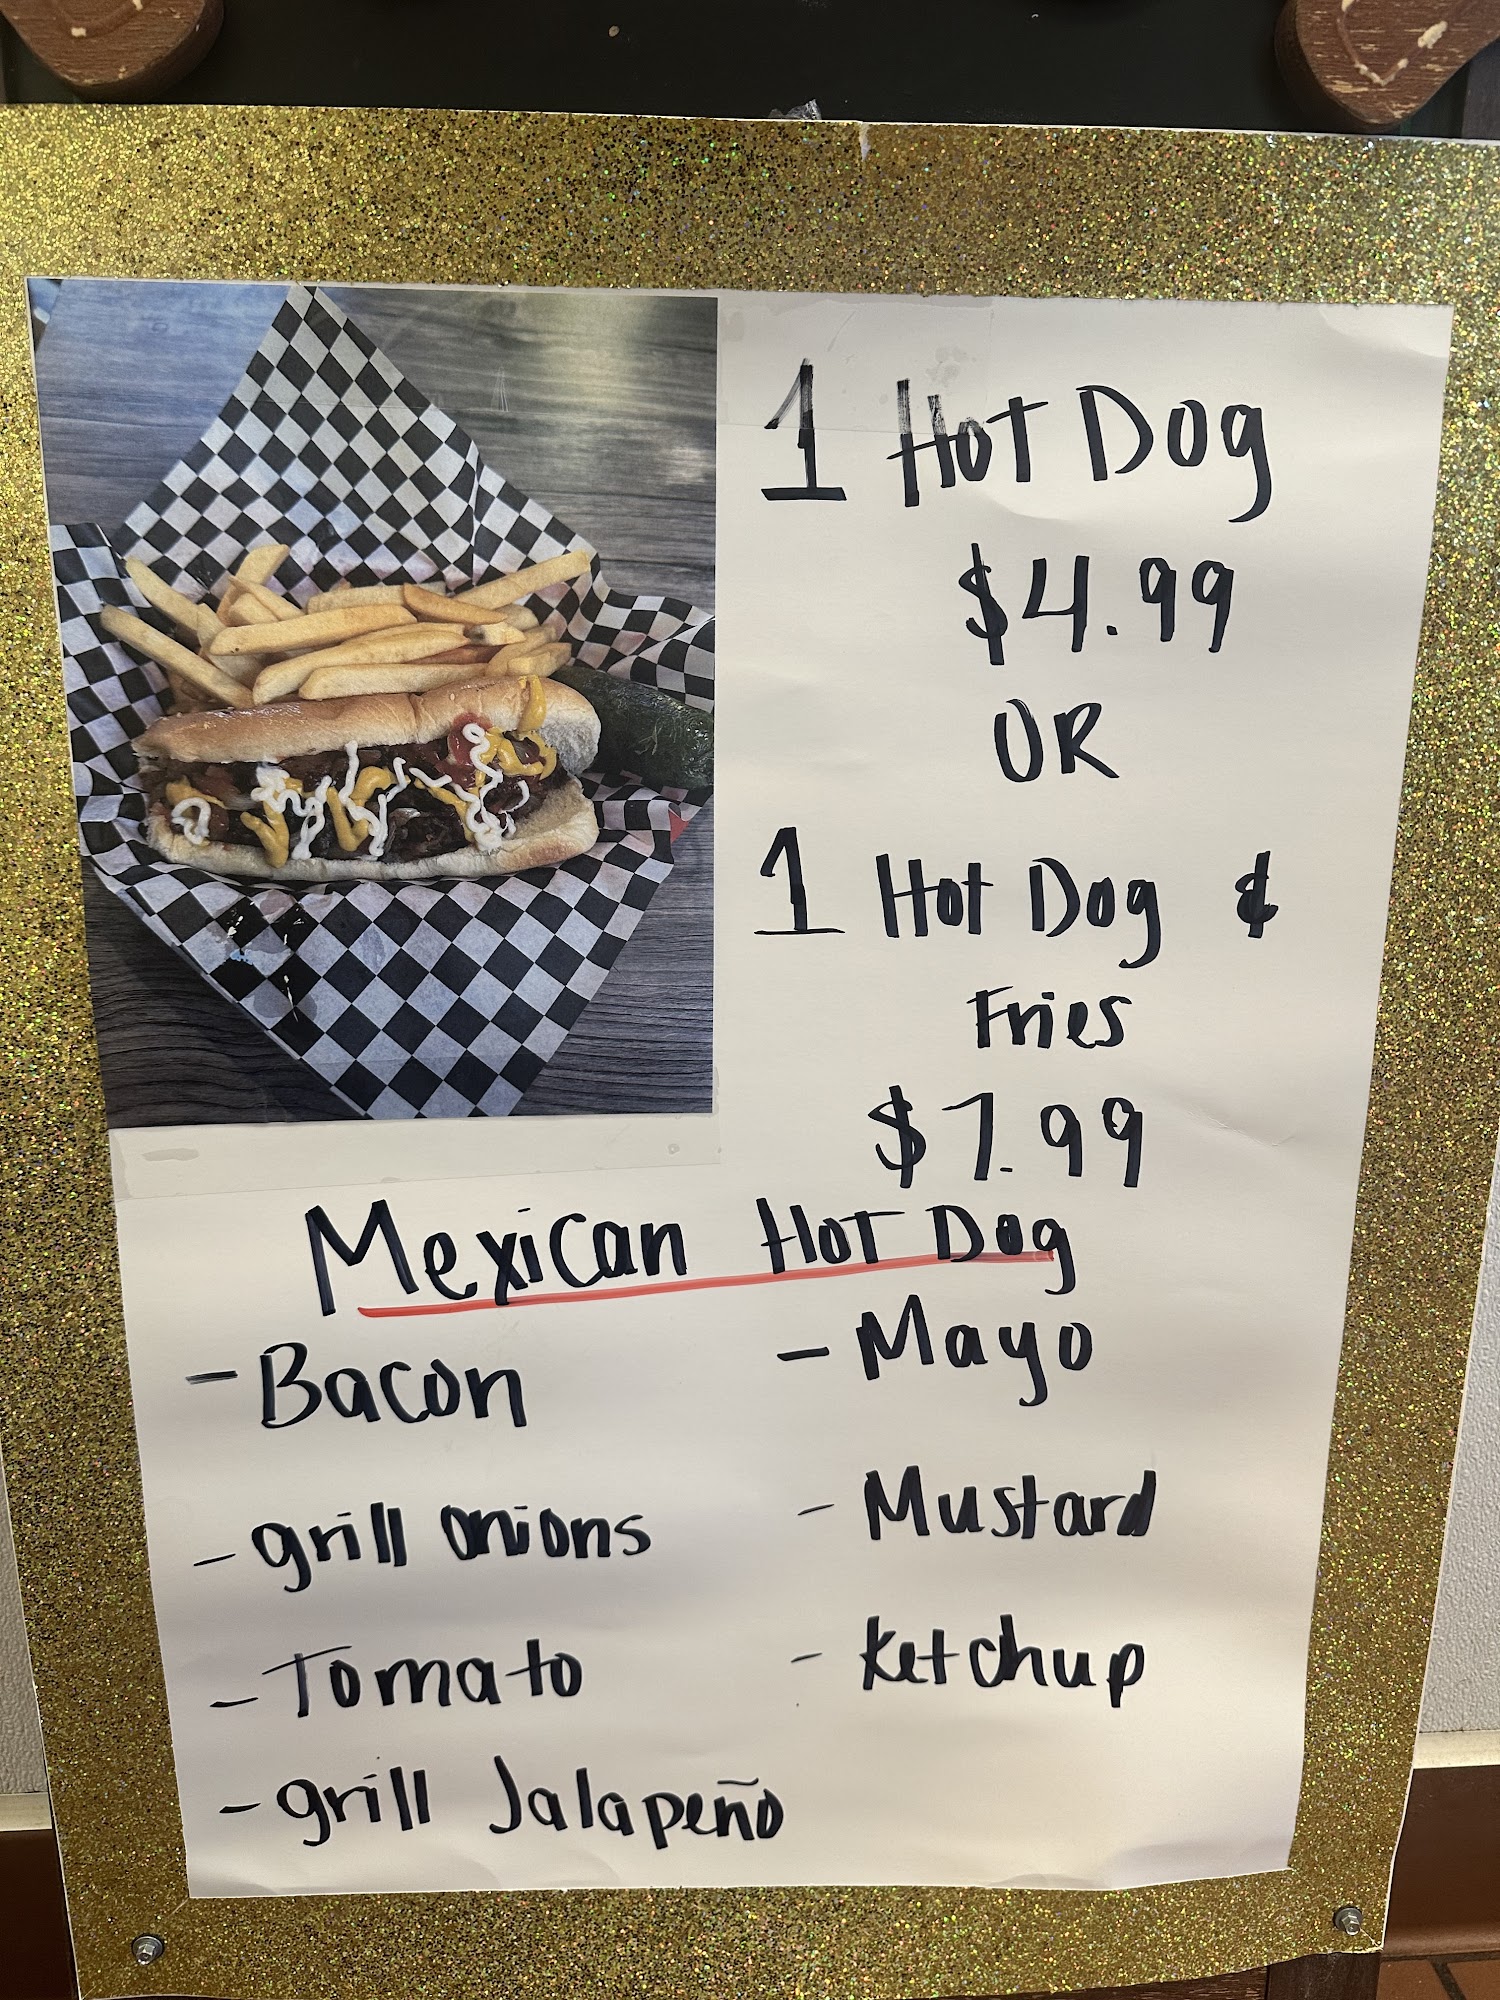 1 Hot Dog
$4.99
OR
1 Hot Dog &
Fries
$7.99
Mexican Hot Dog
- Bacon
- grill onions
- Tomato
- grill Jalapeño
- Mayo
- Mustard
- Ketchup